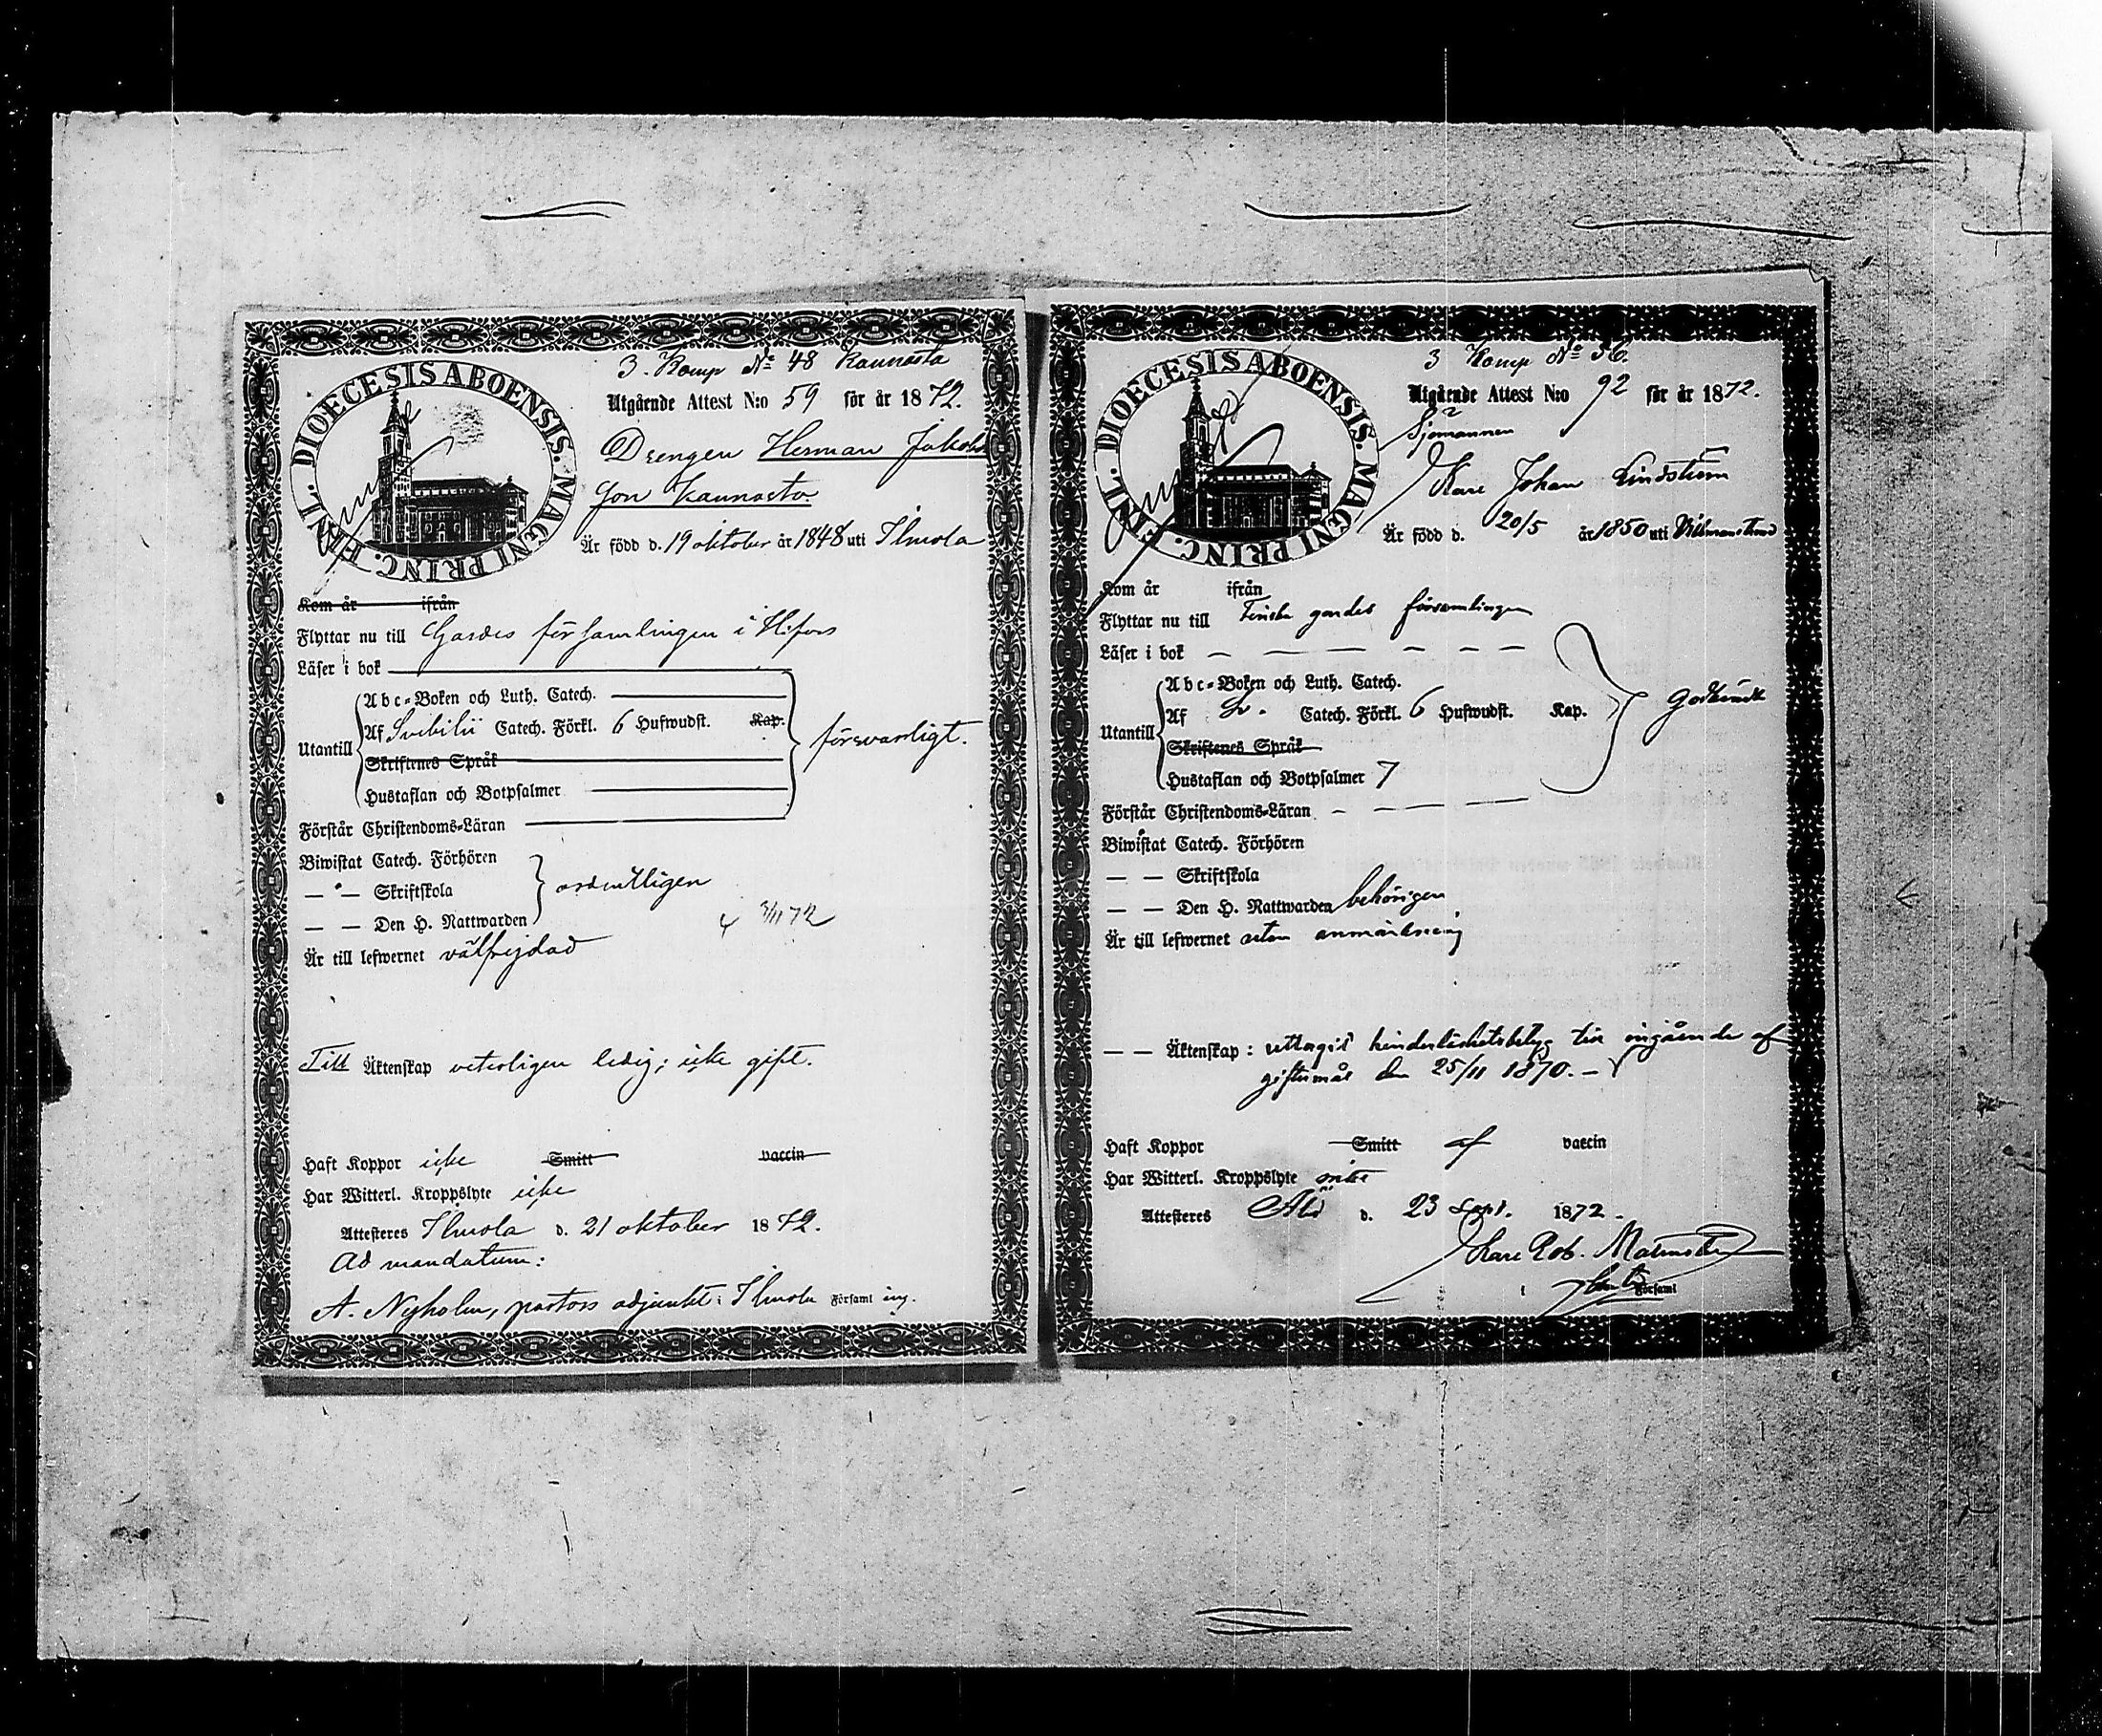 3. Komp No 48 Kaunasto
DIOECESIS ABOENSIS. MAGNI PRINC. FINL.
Utgående Attest N:o 59 för år 1872.
Drengen Herman Jakobs
son Kaunasto
Är född d. 19 oktober år 1848 uti Ilmola
Kom år ifrån
Flyttar nu till Gardes församlingen i H:fors
Läser i bok
Abc-Boken och Luth. Catech.
Utantill Af Svebilii Catech. Förkl. 6 Hufwudst. Kap. försvarligt.
Skriftenes Språk
Hustaflan och Botpsalmer
Förstår Christendoms-Läran
Biwistat Catech. Förhören
— " — Skriftskola ordentligen
— — Den H. Nattwarden
3/11 72
Är till lefwernet välfrejdad
Till Äktenskap veterligen ledig; icke gift.
Haft Koppor icke Smitt vaccin
Har Witterl. Kroppslyte icke
Attesteras Ilmola d. 21 oktober 1872.
Ad mandatum:
A. Nyholm, pastors adjunkt i Ilmola Församl ing.
3 Komp No 56.
DIOECESIS ABOENSIS. MAGNI PRINC. FINL.
Utgående Attest N:o 92 för år 1872.
Sjömannen
Karl Johan Lindström
Är född d. 20/5 år 1850 uti Villmanstrand
Kom år ifrån
Flyttar nu till Finska gardes församlingen
Läser i bok — — — — — —
Abc-Boken och Luth. Catech.
Utantill Af Sv. Catech. Förkl. 6 Hufwudst. Kap. Godkändt
Skriftenes Språk
Hustaflan och Botpsalmer 7
Förstår Christendoms-Läran — — — —
Biwistat Catech. Förhören
— — Skriftskola
— — Den H. Nattwarden behörigen
Är till lefwernet utan anmärkning
— — Äktenskap: uttagit hinderlöshetsbetyg till ingående af
giftermål den 25/11 1870. —
Haft Koppor Smitt af vaccin
Har Witterl. Kroppslyte
Attesteras Åbo d. 23 Sept. 1872.
Karl Rob. Malmström
i Församl